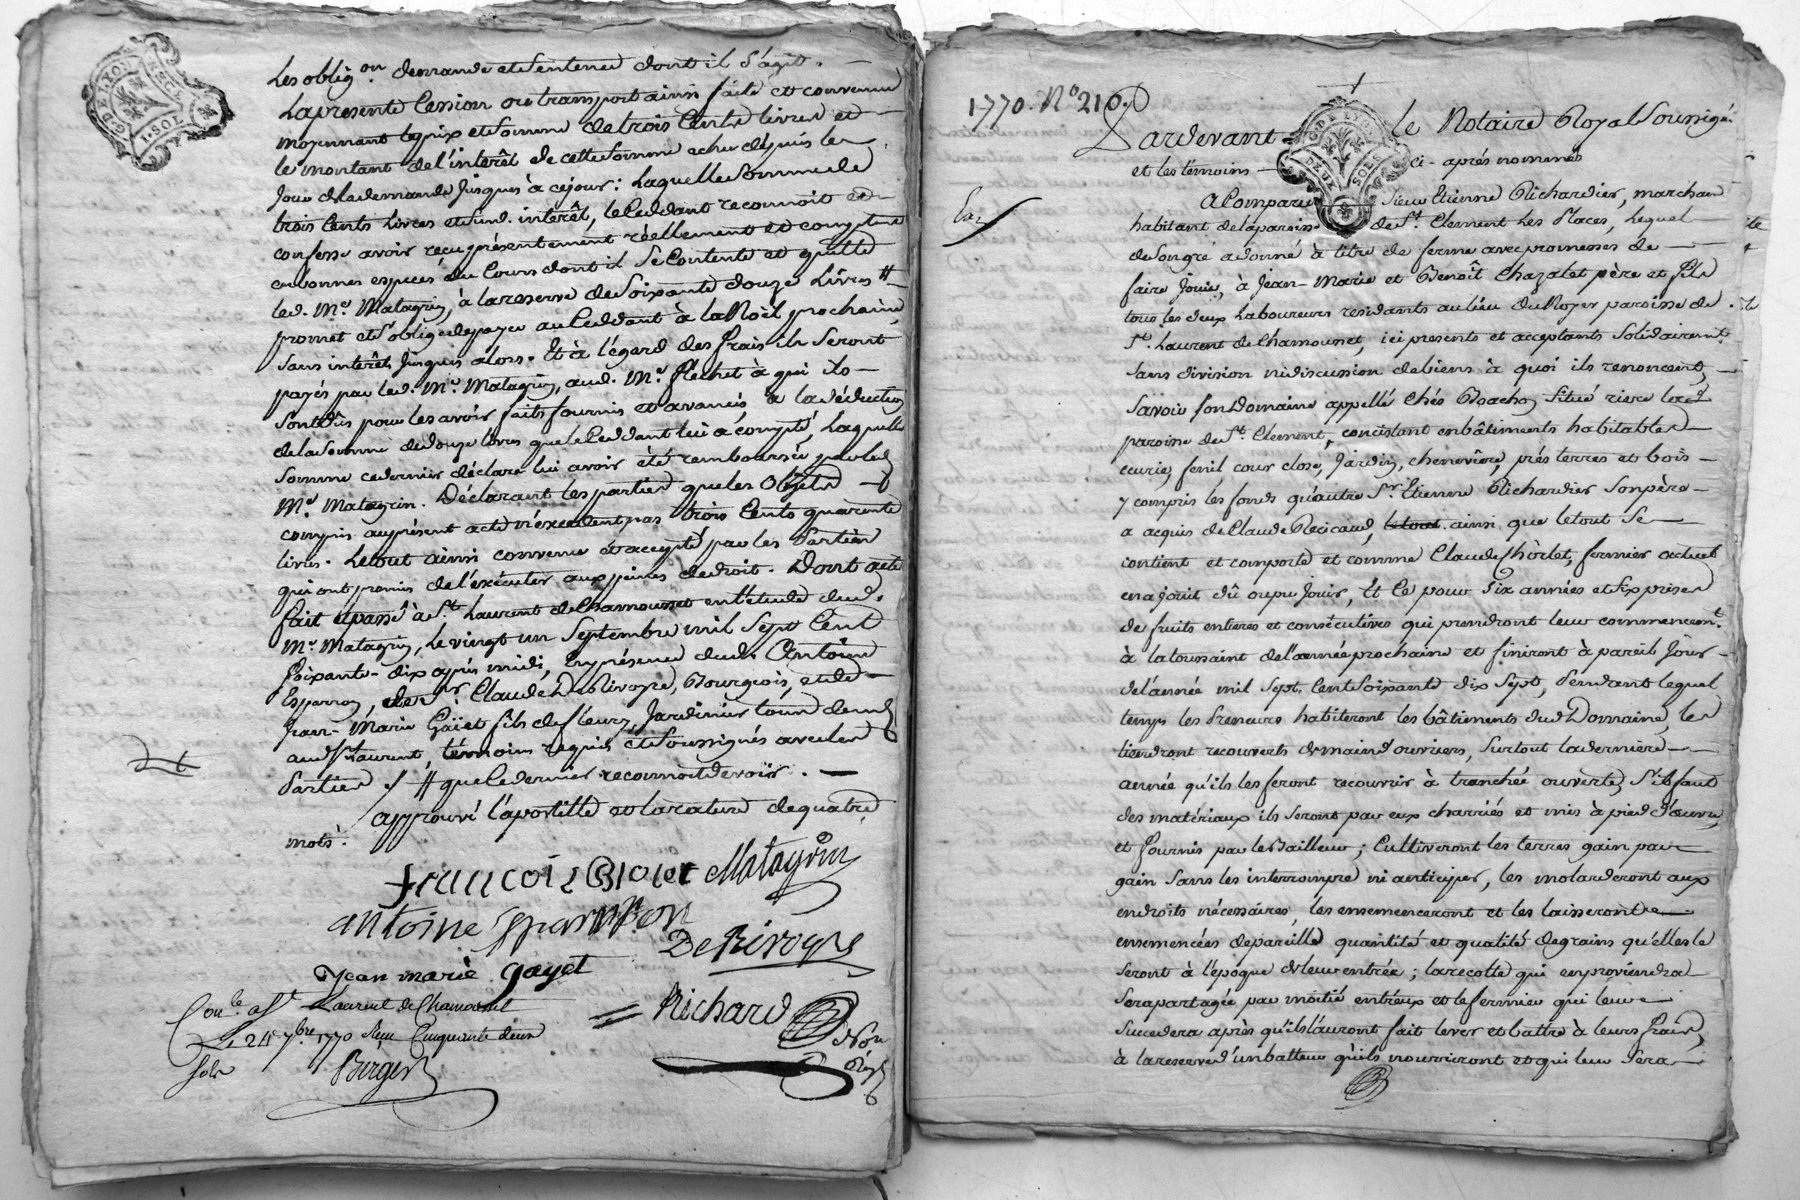 G. DE LYON
1. SOL
Les oblig.on demande et Sentence dont il S'agit. —
La presente Cession ou transport ainsi faite et convenue
moyennant le prix et Somme de trois Cents livres et —
le montant de l'interêt de cette Somme echu depuis le
Jour de la demande Jusques à ce jour: Laquelle Somme de
trois Cents Livres et sud. interêt, le Ceddant reconnoit et
confesse avoir reçu présentement réellement et comptant
en bonnes especes du Cours dont il Se Contente et quitte
led. Me. Matagrin, à la reserve de Soixante douze Livres #
promet et S'oblige de payer au Ceddant à la Noël prochaine
Sans interêt Jusques alors. Et à l'égard des frais ils Seront
payés par led. Me. Matagrin, aud. Me. Flechet à qui ils —
Sont dûs pour les avoir faits fournis et avancés, à la déduction
de la Somme de douze livres que le Ceddant lui a compté, Laquelle
Somme ce dernier déclare lui avoir été remboursée par led.
Me. Matagrin. Déclarant les parties que les Objets —
compris au présent acte n'excedent pas trois Cents quarante
livres. Le tout ainsi convenu et accepté par les Parties
qui ont promis de l'exécuter aux peines de droit. Dont acte
fait et passé à St. Laurent de Chamousset en l'étude dud.
Me. Matagrin, Le vingt un Septembre mil Sept Cent
Soixante-dix après midi, En présence de Sr. Antoine
Esparron, de Sr. Claude DeRivoyre, Bourgeois, et de —
Jean-Marie Gaïet fils de fleury, Jardinier tous demts
aud. St. Laurent, témoins requis et Soussignés avec les
Parties ./. # que le dernier reconnoit devoir. —
approuvé l'apostille et la rature de quatre
mots.
francois Matagrin
antoine Esparron
DeRivoyre
Jean marie gayet
Richard
Con.lé a St. Laurent de Chamousset
Le 24 7.bre 1770 Reçu Cinquante deux
Sols
Berger
Nore
Roy
1770. No 210.
G. DE LYON
DEUX SOLS
Pardevant le Notaire Royal Soussigé.
et les témoins — ci-après nommés
A Comparu Sieur Etienne Richardier, marchand
habitant de la paroisse de St. Clement Les Places, Lequel —
de Son gré a donné à titre de ferme avec promesses de —
faire Jouir, à Jean-Marie et Benoît Chazalet père et fils
tous les deux Laboureurs residants au lieu du Noyer paroisse de
St. Laurent de Chamousset, ici presents et acceptants Solidairemt.
Sans division ni discussion de biens à quoi ils renoncent, —
Savoir son Domaine appellé Chés Brachon Situé riere lad.
paroisse de St. Clement, concistant en bâtiments habitables —
ecurie, fenil cour close, Jardin, cheneviere, prés terres et bois —
y compris les fonds qu'autre Sr. Etienne Richardier Son père —
a acquis de Claude Recicaud, ainsi que le tout Se —
contient et comporte et comme Claude Chorlet, fermier actuel
en a joüit dû ou pu Jouir, Et Ce pour Six années et Six prises
de fruits entieres et consécutives qui prendront leur commencemt.
à la toussaint de l'année prochaine et finiront à pareil Jour —
de l'année mil Sept Cent Soixante dix Sept, Pendant lequel
temps les Preneurs habiteront les bâtiments dud. Domaine, les
tiendront recouverts de main d'ouvriers, Surtout la derniere —
année qu'ils les feront recouvrir à tranchée ouverte, S'il faut
des matériaux ils Seront par eux charriés et mis à pied d'œuvre,
et fournis par le Bailleur; Cultiveront les terres gain par —
gain Sans les interrompre ni anticiper, les molarderont aux
endroits nécessaires, les ensemenceront et les laisseront —
ensemencées de pareille quantité et qualité de grains qu'elles le
Seront à l'époque de leur entrée; la recolte qui en proviendra
Sera partagée par moitié entr'eux et le fermier qui leur —
Succedera après qu'ils l'auront fait lever et battre à leurs frais,
à la reserve d'un batteur qu'ils nourriront et qui leur Sera —